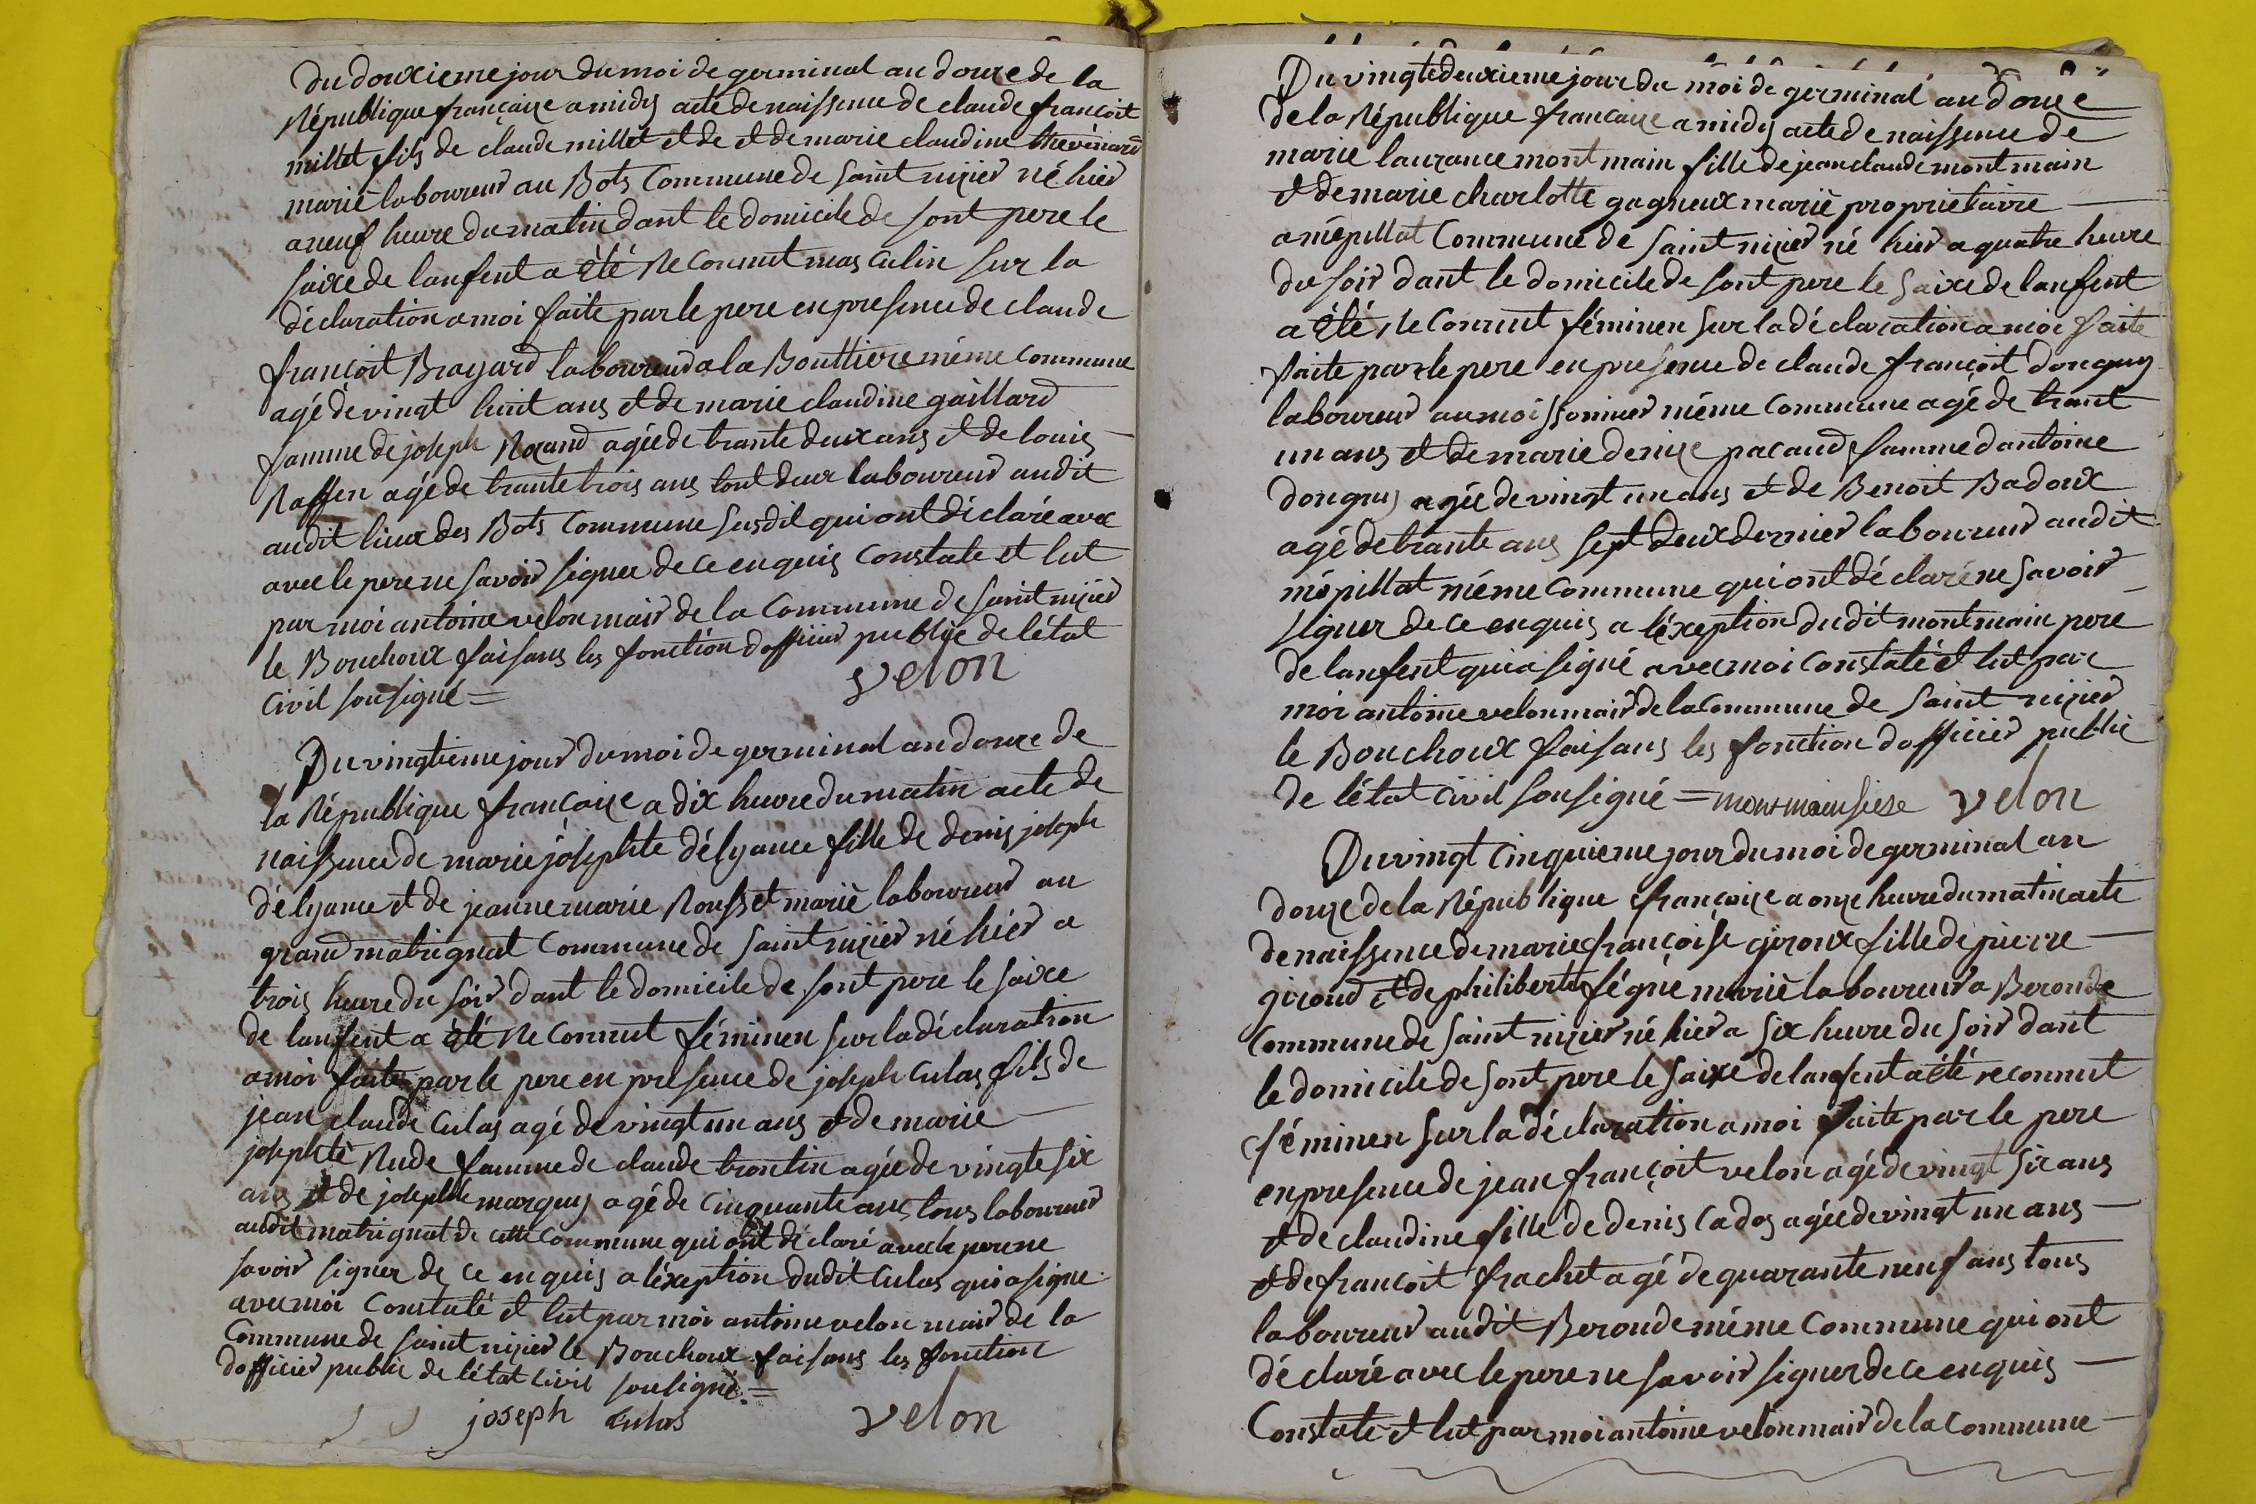 Du douxieme jour du moi de germinal an douze de la
République françaize a midy acte de naissence de claude françoit
millet fils de claude millet et de et de marie claudine thevenard
mariè laboureur au Bots Commune de saint nizier né hier
a neuf heure du matin dant le domicile de sont pere le
saixe de lanfent a été Reconnut masculin sur la
déclaration a moi faite par le pere en presence de claude
françoit Brayard laboureur a la Bouttiere méme commune
agé de vingt huit ans et de marie claudine gaillard
famme de joseph Morand agée de trante deux ans et de louis
Raffin agé de trante trois ans tout deux laboureur audit
audit lieux des Bots Commune susdit qui ont déclaré avec
avec le pere ne savoir signer de ce enquis Constaté et lut
par moi antoine velon mair de la Commune de saint nizier
le Bouchoux faisans les fonction dofficier public de l'état
Civil sousigné =
velon
Du vingtieme jour du moi de germinal an douze de
la République françaize a dix heure du matin acte de
naissence de marie josephte délyance fille de denis joseph
délyance et de jeanne marie Rousset mariè laboureur au
grand matrignat Commune de saint nizier né hier a
trois heure du soir dant le domicile de sont pere le saixe
de lanfent a été Reconnut féminen sur la déclaration
a moi faite par le pere en presence de joseph Culas fils de
jean claude Culas agé de vingt un ans et de marie
josephte Rude famme de claude trontin agée de vingte six
ans et de josephte marguy agé de Cinquante ans tous laboureur
audit matrignat de cette Commune qui ont déclaré avec le pere ne
savoir signer de ce enquis a léxeption dudit Culas qui a signe
avec moi Constaté et lut par moi antoine velon mair de la
Commune de saint nizier le Bouchoux faisans les fonction
dofficier public de létat Civil sousigné =
joseph culas velon
Du vingtedeuxieme jour du moi de germinal an douze
de la République françaize a midy acte de naissence de
marie laurance montmain fille de jean claude montmain
et de marie charlotte gagneux mariè proprietaire
a mépillat Commune de saint nizier né hier a quatre heure
du soir dant le domicile de sont pere le saixe de lanfent
a été Reconnut féminen sur la déclaration a moi faite
faite par le pere en presence de claude françoit donguy
laboureur au moissonnier méme Commune agé de trant
un ans et de marie denize pacaud famme dantoine
donguy agée de vingt un ans et de Benoit Badoux
agé de trante ans sept deux dernier laboureur audit
mépillat méme Commune qui ont déclaré ne savoir
signer de ce enquis a léxeption dudit montmain pere
de lanfent qui a signé avec moi Constaté et lut par
moi antoine velon mair de la Commune de saint nizier
le Bouchoux faisans les fonction dofficier public
de létat Civil sousigné = velon
Du vingt Cinquieme jour du moi de germinal an
douze de la République françaize a onze heure du matin acte
de naissence de marie françoise giroux fille de pierre
giroud et de philiberte fégne mariè laboureur a Beronde
Commune de saint nizier né hier a six heure du soir dant
le domicile de sont pere le saixe de lanfent a été reconnut
féminen sur la déclaration a moi faite par le pere
en presence de jean françoit velon agé de vingt six ans
et de claudine fille de denis Cados agée de vingt un ans
et de françoit frachet agé de quarante neuf ans tous
laboureur audit Beronde méme Commune qui ont
déclaré avec le pere ne savoir signer de ce enquis
Constaté et lut par moi antoine velon mair de la Commune